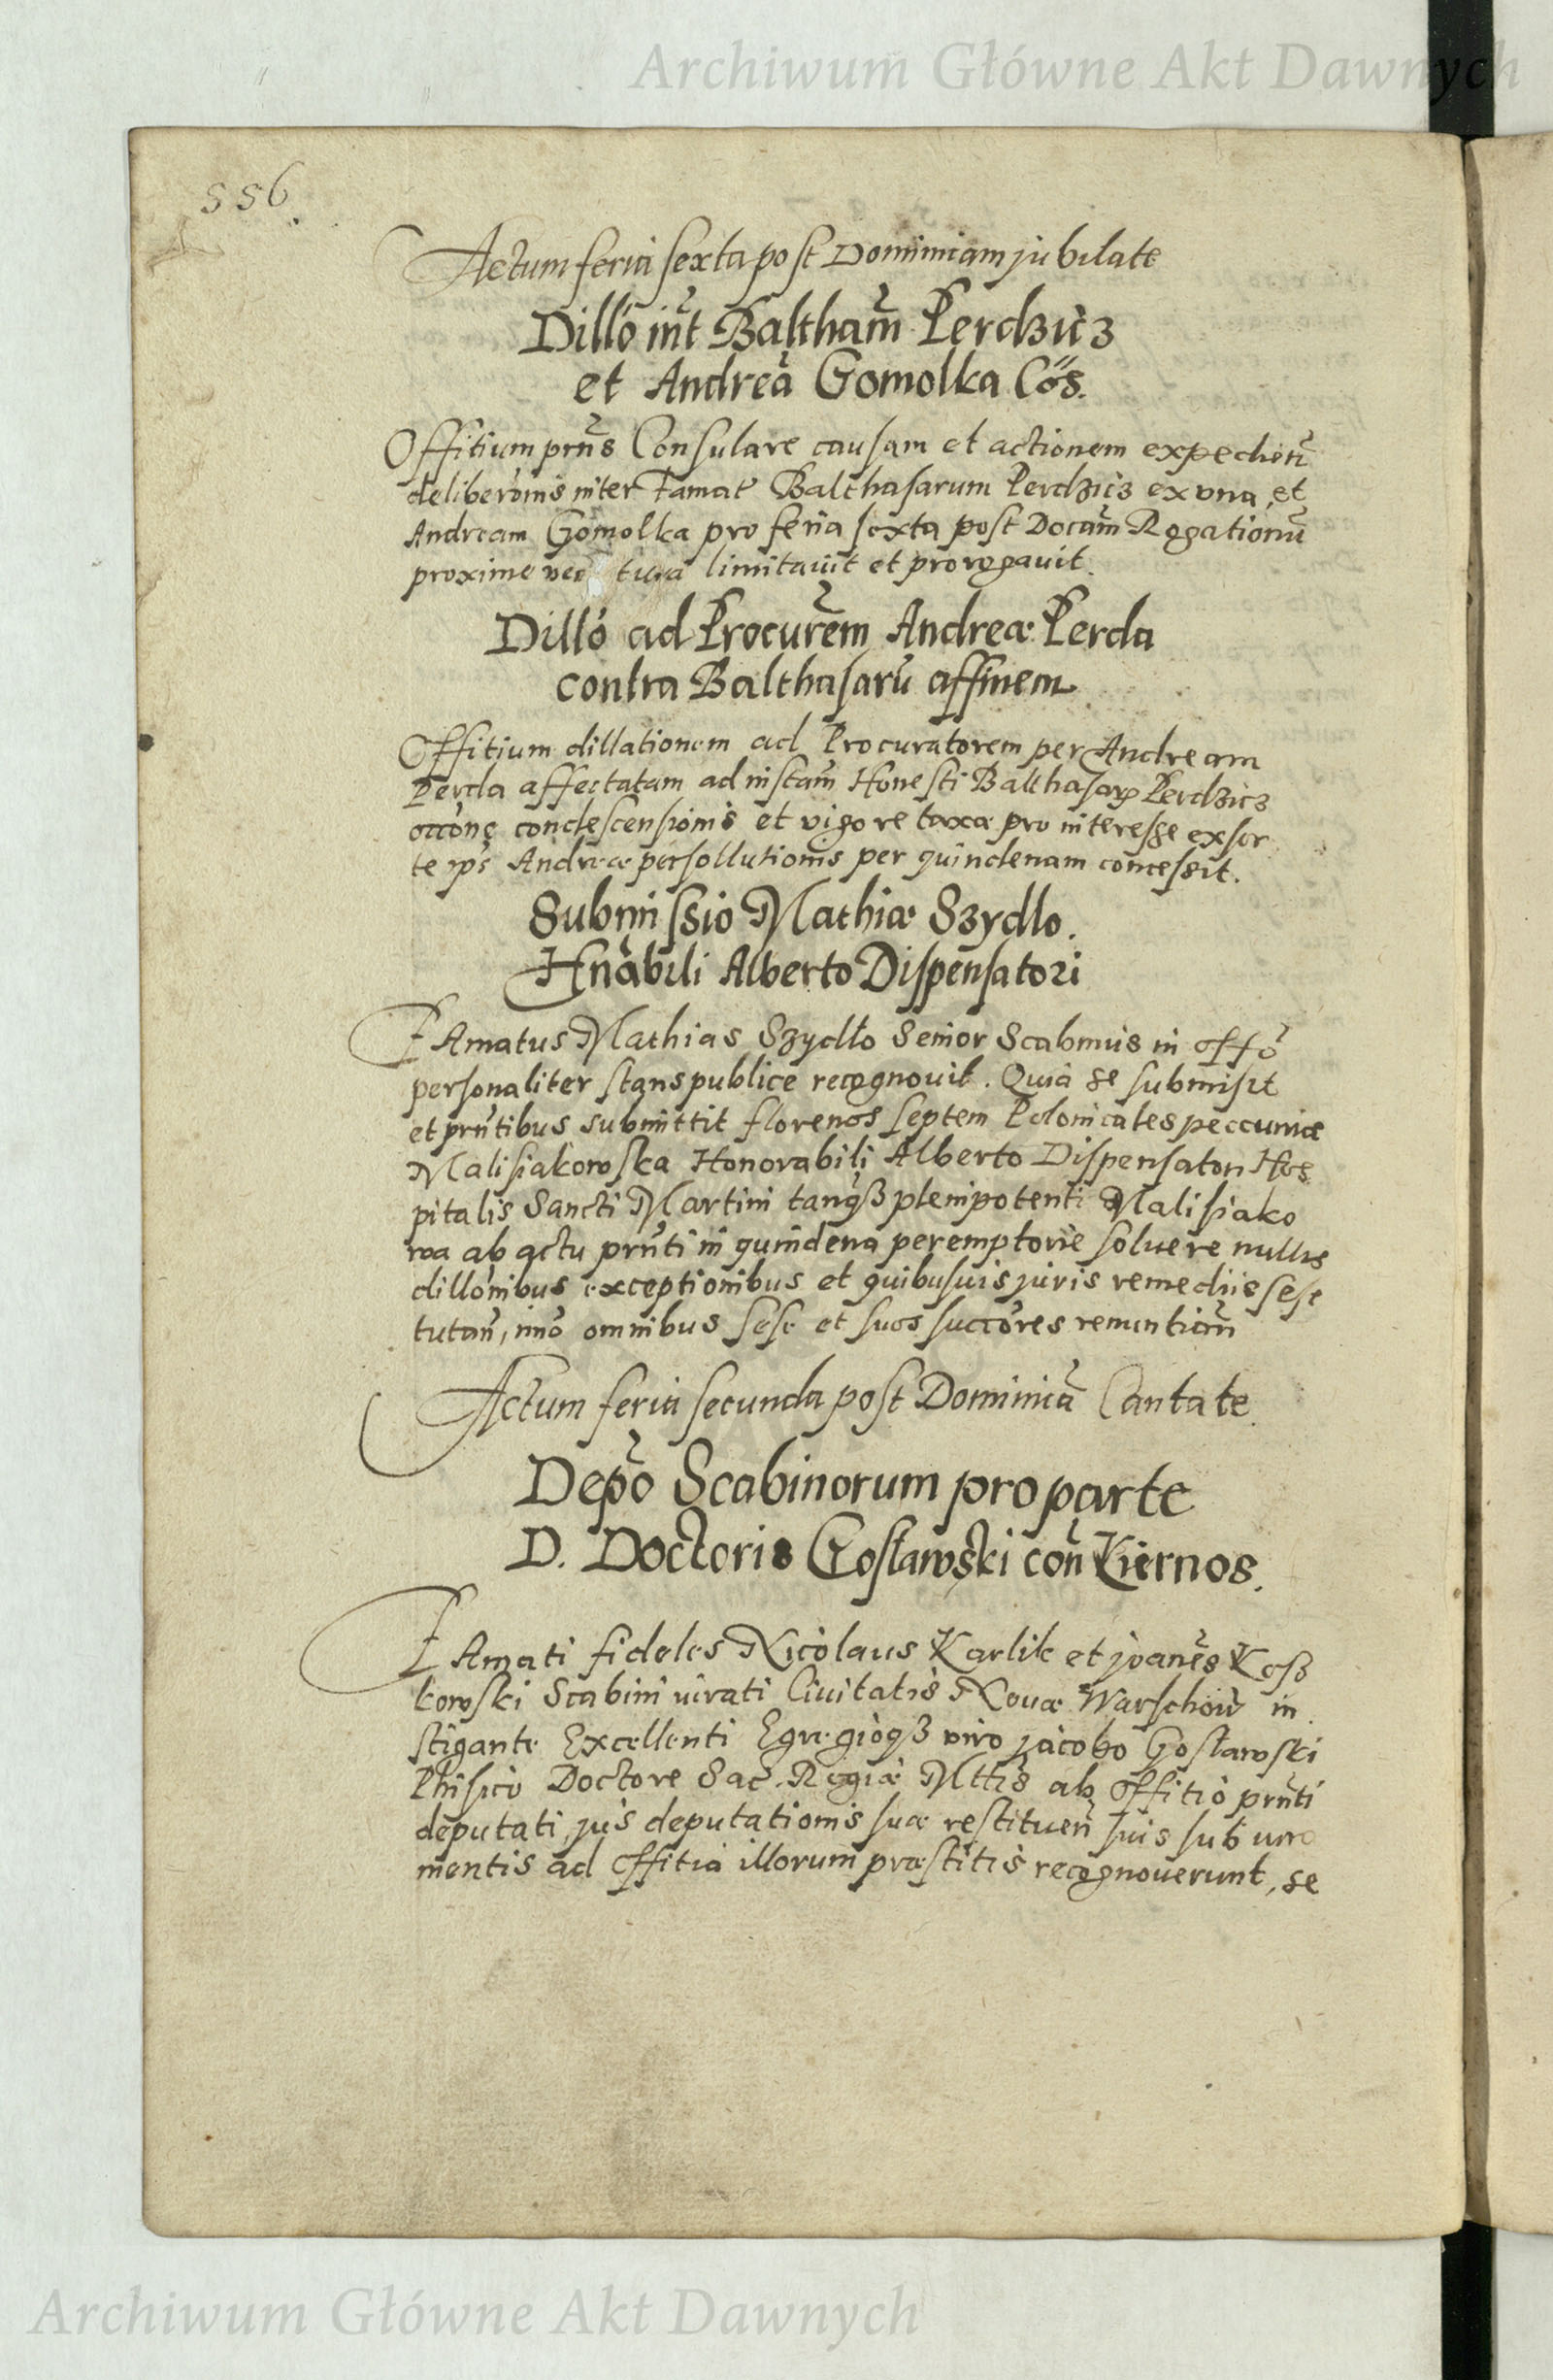 Archiwum Główne Akt Dawnych
556.
Actum feria sexta post Dominicam jubilate
Dillo int Baltham Perdzicz
et Andrea Gomolka Cös.
Offitium prns Consulare causam et actionem expedien
deliberomis inter Famat Balthasarum Perdzicz ex vna et
Andream Gomolka pro feria sexta post Docam Rogationu
proxime ven tura limitauit et prorogauit.
Dillo ad Procurem Andreæ Perda
contra Balthasaru affinem
Offitium dillationem ad Procuratorem per Andream
Perda affectatam ad instam Honesti Balthasary Perdzicz
occone condescensionis et vigore taxæ pro interesse ex sor
te ips Andreæ persollutionis per quindenam concessit.
Submissio Mathiæ Szydlo.
Hnabili Alberto Dispensatori
FAmatus Mathias Szydło Senior Scabinus in offo
personaliter stans publice recognouit. Quia se submisit
et prntibus submittit florenos septem Polonicales peccuniæ
Malisiakowska Honorabili Alberto Dispensatori Hos
pitalis Sancti Martini tanqз plenipotenti Malisiako
wa ab actu prnti in quindena peremptorie soluere nullis
dillonibus exceptionibus et quibusuis juris remediis sese
tutan, imo omnibus sese et suos succores renuntian
Actum feria secunda post Dominica Cantate
Depo Scabinorum pro parte
D. Doctoris Gosławski con Kiernos.
FAmati fideles Nicolaus Karlik et joanes Kosz
kowski Scabini iurati Ciuitatis Nouæ Warschoui in
stigante Excellenti Egregioqз viro jacobo Gosławski
Phisico Doctore Sac. Regiæ Mttis ab offitio prnti
deputati, jus deputationis suæ restituen suis sub iura
mentis ad offitia illorum præstitis recognouerunt, se
Archiwum Główne Akt Dawnych